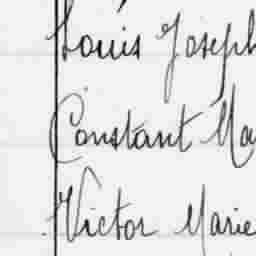 Louis Joseph
Constant Ma
Victor Marie